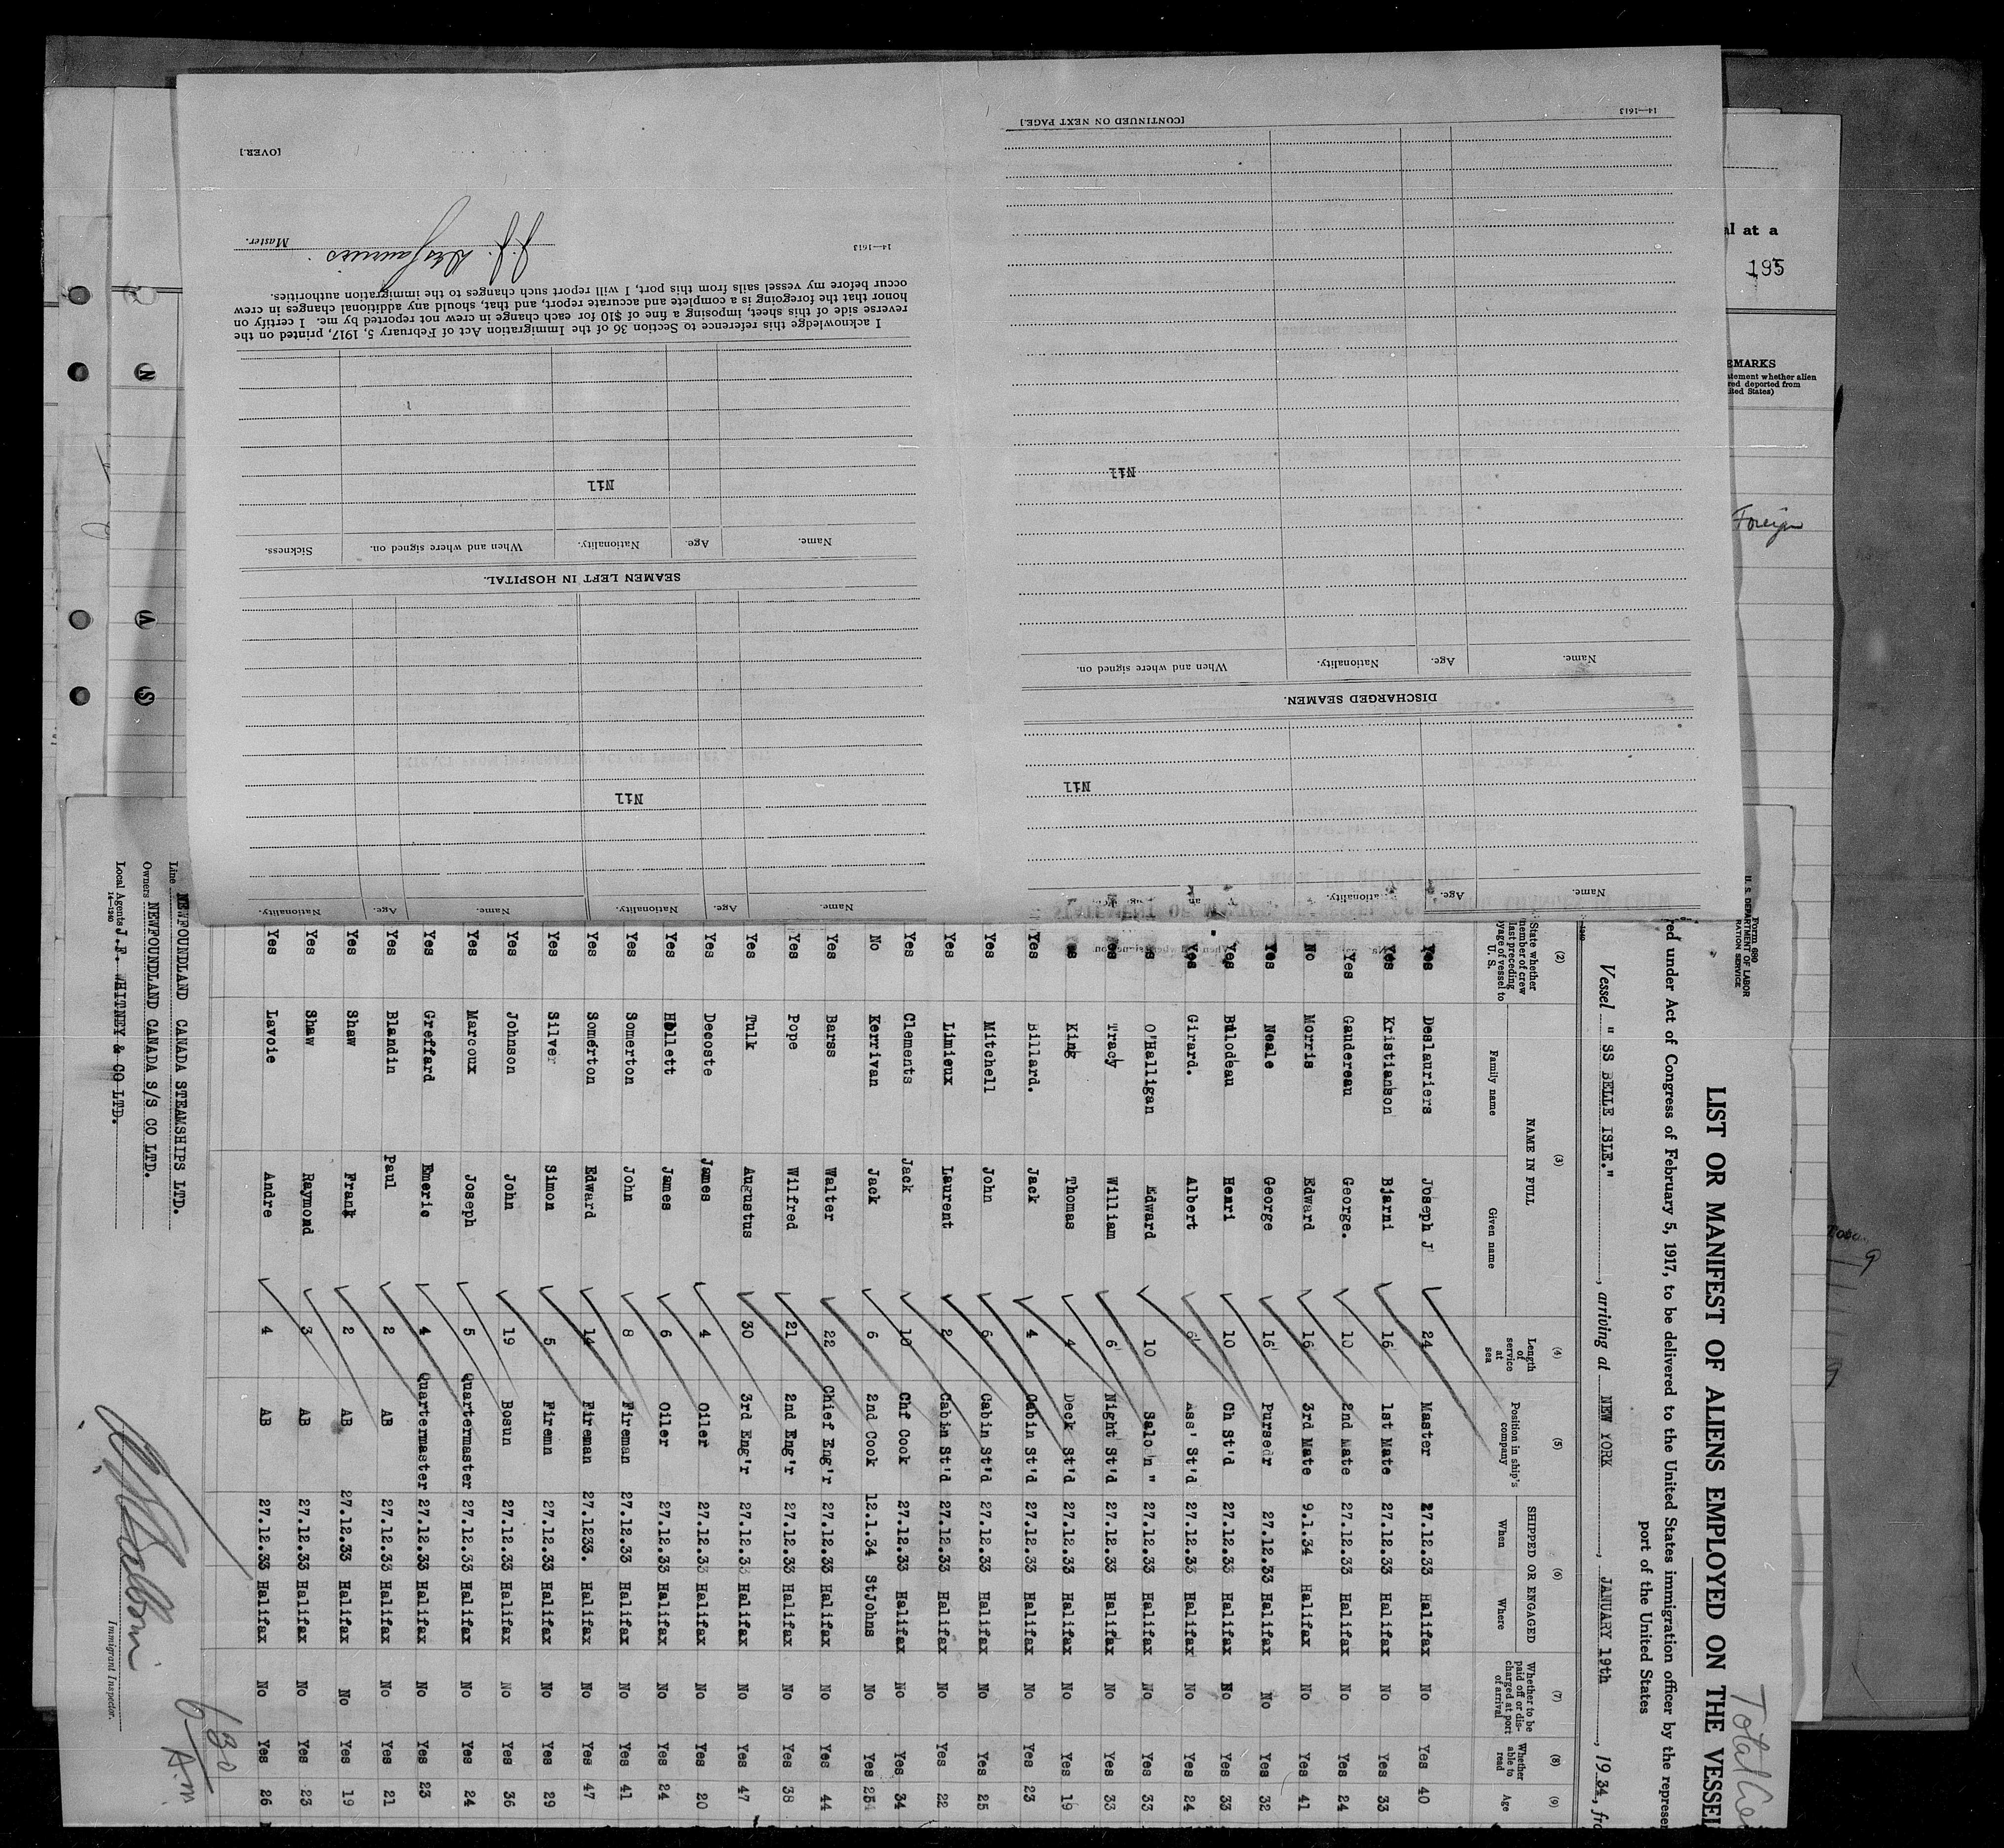 14—1613
[CONTINUED ON NEXT PAGE.]
Nil
Name.
Age.
Nationality.
When and where signed on.
DISCHARGED SEAMEN.
Nil
Name.
Age.
Nationality.
[OVER.]
J. J. Deslauriers
Master.
14—1613
I acknowledge this reference to Section 36 of the Immigration Act of February 5, 1917, printed on the
reverse side of this sheet, imposing a fine of $10 for each change in crew not reported by me. I certify on
honor that the foregoing is a complete and accurate report, and that, should any additional changes in crew
occur before my vessel sails from this port, I will report such changes to the immigration authorities.
Nil
Name. Age. Nationality. When and where signed on. Sickness.
SEAMEN LEFT IN HOSPITAL.
Nil
Name. Age. Nationality. Name. Age. Nationality.
al at a
195
EMARKS
Foreign
Form 680
U. S. DEPARTMENT OF LABOR
Total
LIST OR MANIFEST OF ALIENS EMPLOYED ON THE VESSEL
red under Act of Congress of February 5, 1917, to be delivered to the United States immigration officer by the represen
port of the United States
Vessel " SS BELLE ISLE.", arriving at NEW YORK, JANUARY 19th, 1934, fro
(2) (3) (4) (5) (6) (7) (8) (9)
State whether member of crew last preceding voyage of vessel to U. S.
NAME IN FULL
Family name
Given name
Length of service at sea
Position in ship's company
SHIPPED OR ENGAGED
When
Where
Whether to be paid off or discharged at port of arrival
Whether able to read
Age
Yes Deslauriers Joseph J 24 Master 27.12.33 Halifax No Yes 40
Yes Kristianson Bjarni 16 1st Mate 27.12.33 Halifax No Yes 33
Yes Gaudereau George. 10 2nd Mate 27.12.33 Halifax No Yes 24
No Morris Edward 16 3rd Mate 9.1.34 Halifax No Yes 41
Yes Neale George 16 Purser 27.12.33 Halifax No Yes 32
Yes Bilodeau Henri 10 Ch St'd 27.12.33 Halifax No Yes 33
Yes Girard. Albert 6 Ass' St'd 27.12.33 Halifax No Yes 24
Yes O'Halligan Edward 10 Saloon " 27.12.33 Halifax No Yes 33
Yes Tracy William 6 Night St'd 27.12.33 Halifax No Yes 33
Yes King Thomas 4 Deck St'd 27.12.33 Halifax No Yes 19
Yes Billard. Jack 4 Cabin St'd 27.12.33 Halifax No Yes 23
Yes Mitchell John 6 Cabin St'd 27.12.33 Halifax No Yes 25
Yes Limieux Laurent 2 Cabin St'd 27.12.33 Halifax No Yes 22
Yes Clements Jack 10 Chf Cook 27.12.33 Halifax No Yes 34
No Kerrivan Jack 6 2nd Cook 12.1.34 StJohns No Yes
Yes Barss Walter 22 Chief Eng'r 27.12.33 Halifax No Yes 44
Yes Pope Wilfred 21 2nd Eng'r 27.12.33 Halifax No Yes 38
Yes Tulk Augustus 30 3rd Eng'r 27.12.33 Halifax No Yes 47
Yes Decoste James 4 Oiler 27.12.33 Halifax No Yes 20
Yes Hollett James 6 Oiler 27.12.33 Halifax No Yes 24
Yes Somerton John 8 Fireman 27.12.33 Halifax No Yes 41
Yes Somerton Edward 14 Fireman 27.1233. Halifax No Yes 47
Yes Silver Simon 5 Firemn 27.12.33 Halifax No Yes 29
Yes Johnson John 19 Bosun 27.12.33 Halifax No Yes 36
Yes Marcoux Joseph 5 Quartermaster 27.12.33 Halifax No Yes 24
Yes Greffard Emeric 4 Quartermaster 27.12.33 Halifax No Yes 23
Yes Blandin Paul 2 AB 27.12.33 Halifax No Yes 21
Yes Shaw Frank 2 AB 27.12.33 Halifax No Yes 19
Yes Shaw Raymond 3 AB 27.12.33 Halifax No Yes 23
Yes Lavoie Andre 4 AB 27.12.33 Halifax No Yes 26
Line NEWFOUNDLAND CANADA STEAMSHIPS LTD.
Owners NEWFOUNDLAND CANADA S/S CO LTD.
Local Agents J.F. WHITNEY & CO LTD.
14—1240
Immigrant Inspector.
630
A.m